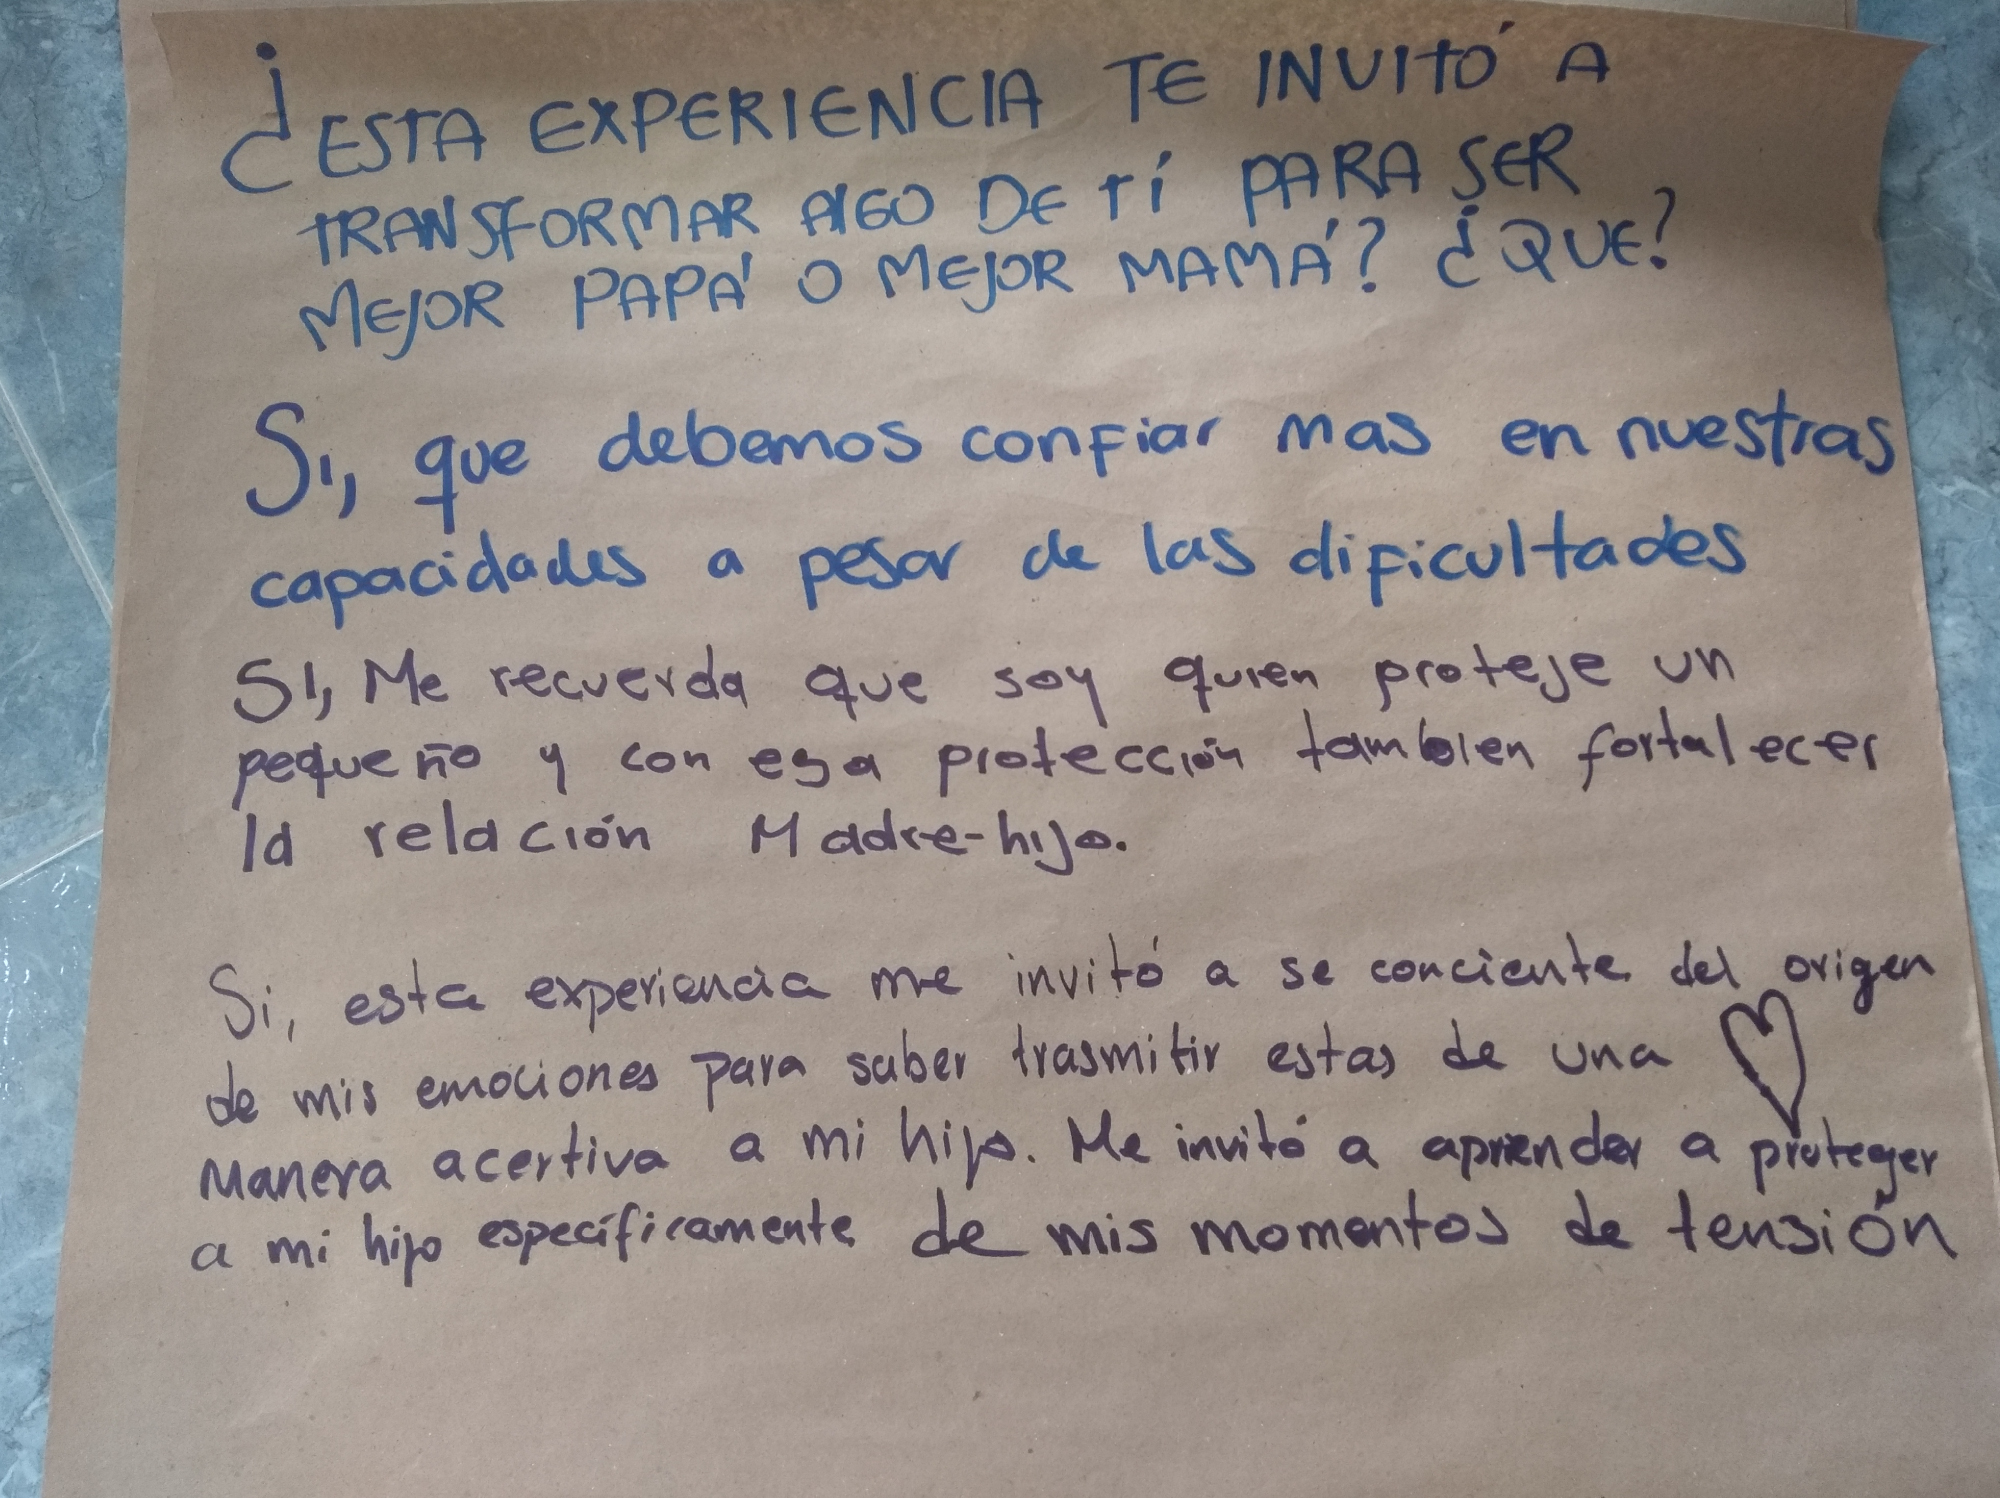 ¿ESTA EXPERIENCIA TE INVITÓ A
TRANSFORMAR AlGO DE TÍ PARA SER
MEJOR PAPÁ O MEJOR MAMÁ? ¿QUE?
Si, que debemos confiar mas en nuestras
capacidades a pesar de las dificultades
SI, Me recuerda que soy quien proteje un
pequeño y con esa protección tambien fortalecer
la relación Madre-hijo.
Si, esta experiencia me invitó a se conciente del origen
de mis emociones para saber trasmitir estas de una
Manera acertiva a mi hijo. Me invitó a aprender a proteger
a mi hijo específicamente de mis momentos de tensión